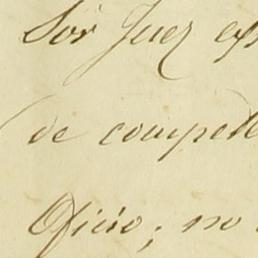 Sör Juez
de compete
Oficio; no